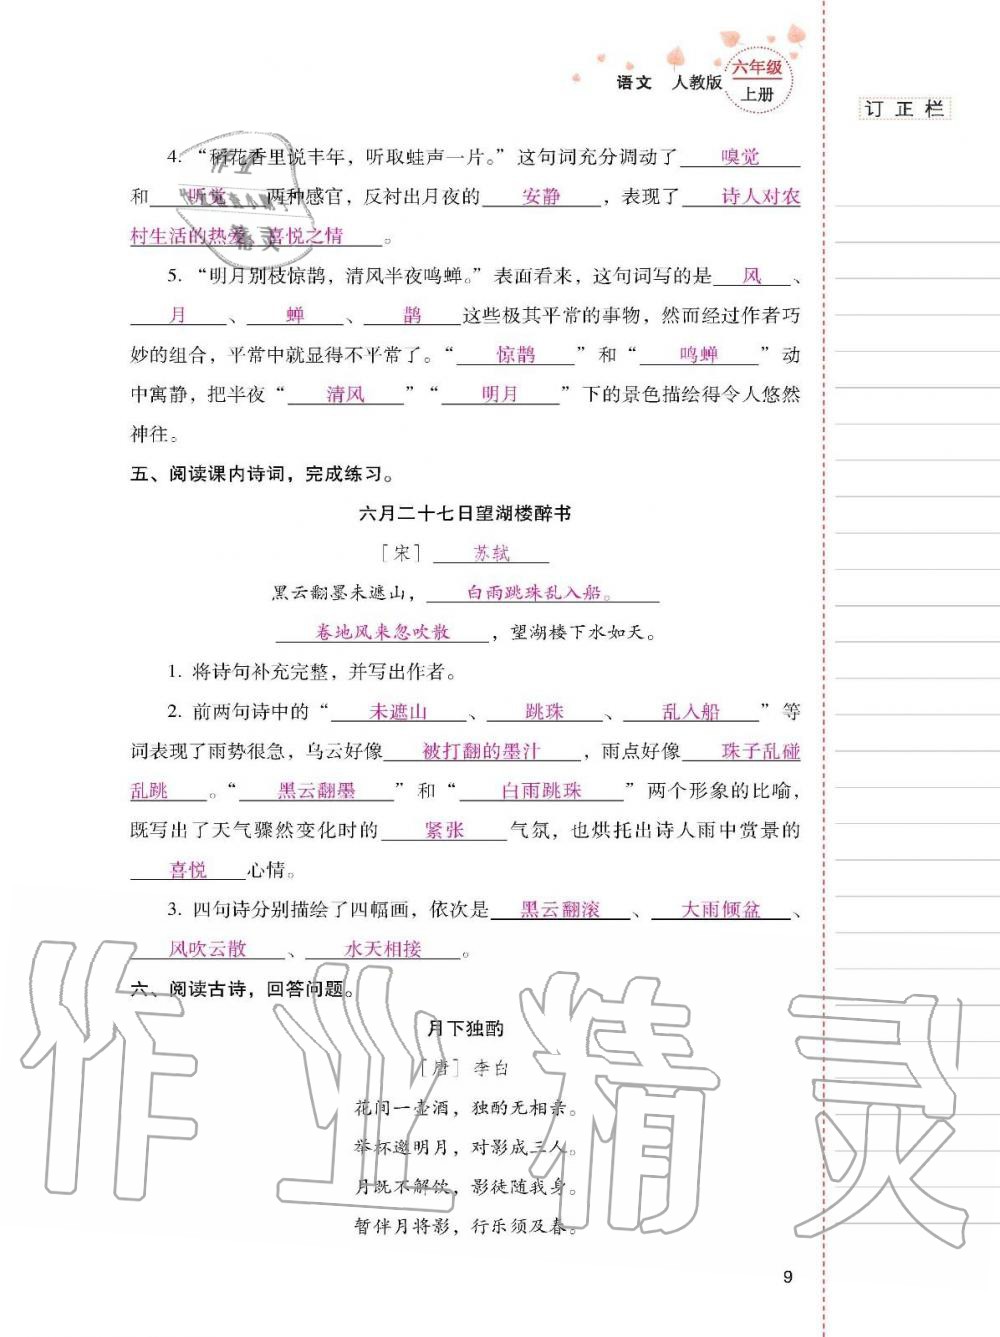 语文 人教版 六年级
上册
订正栏
4. “稻花香里说丰年，听取蛙声一片。”这句词充分调动了 嗅觉
和 听觉 两种感官，反衬出月夜的 安静 ，表现了 诗人对农
村生活的热爱 喜悦之情 。
5. “明月别枝惊鹊，清风半夜鸣蝉。”表面看来，这句词写的是 风 、
月 、 蝉 、 鹊 这些极其平常的事物，然而经过作者巧
妙的组合，平常中就显得不平常了。“ 惊鹊 ”和“ 鸣蝉 ”动
中寓静，把半夜“ 清风 ”“ 明月 ”下的景色描绘得令人悠然
神往。
五、阅读课内诗词，完成练习。
六月二十七日望湖楼醉书
［宋］ 苏轼
黑云翻墨未遮山， 白雨跳珠乱入船。
卷地风来忽吹散 ，望湖楼下水如天。
1. 将诗句补充完整，并写出作者。
2. 前两句诗中的“ 未遮山 、 跳珠 、 乱入船 ”等
词表现了雨势很急，乌云好像 被打翻的墨汁 ，雨点好像 珠子乱碰
乱跳 。“ 黑云翻墨 ”和“ 白雨跳珠 ”两个形象的比喻，
既写出了天气骤然变化时的 紧张 气氛，也烘托出诗人雨中赏景的
喜悦 心情。
3. 四句诗分别描绘了四幅画，依次是 黑云翻滚 、 大雨倾盆 、
风吹云散 、 水天相接 。
六、阅读古诗，回答问题。
月下独酌
［唐］李白
花间一壶酒，独酌无相亲。
举杯邀明月，对影成三人。
月既不解饮，影徒随我身。
暂伴月将影，行乐须及春。
作业精灵
9